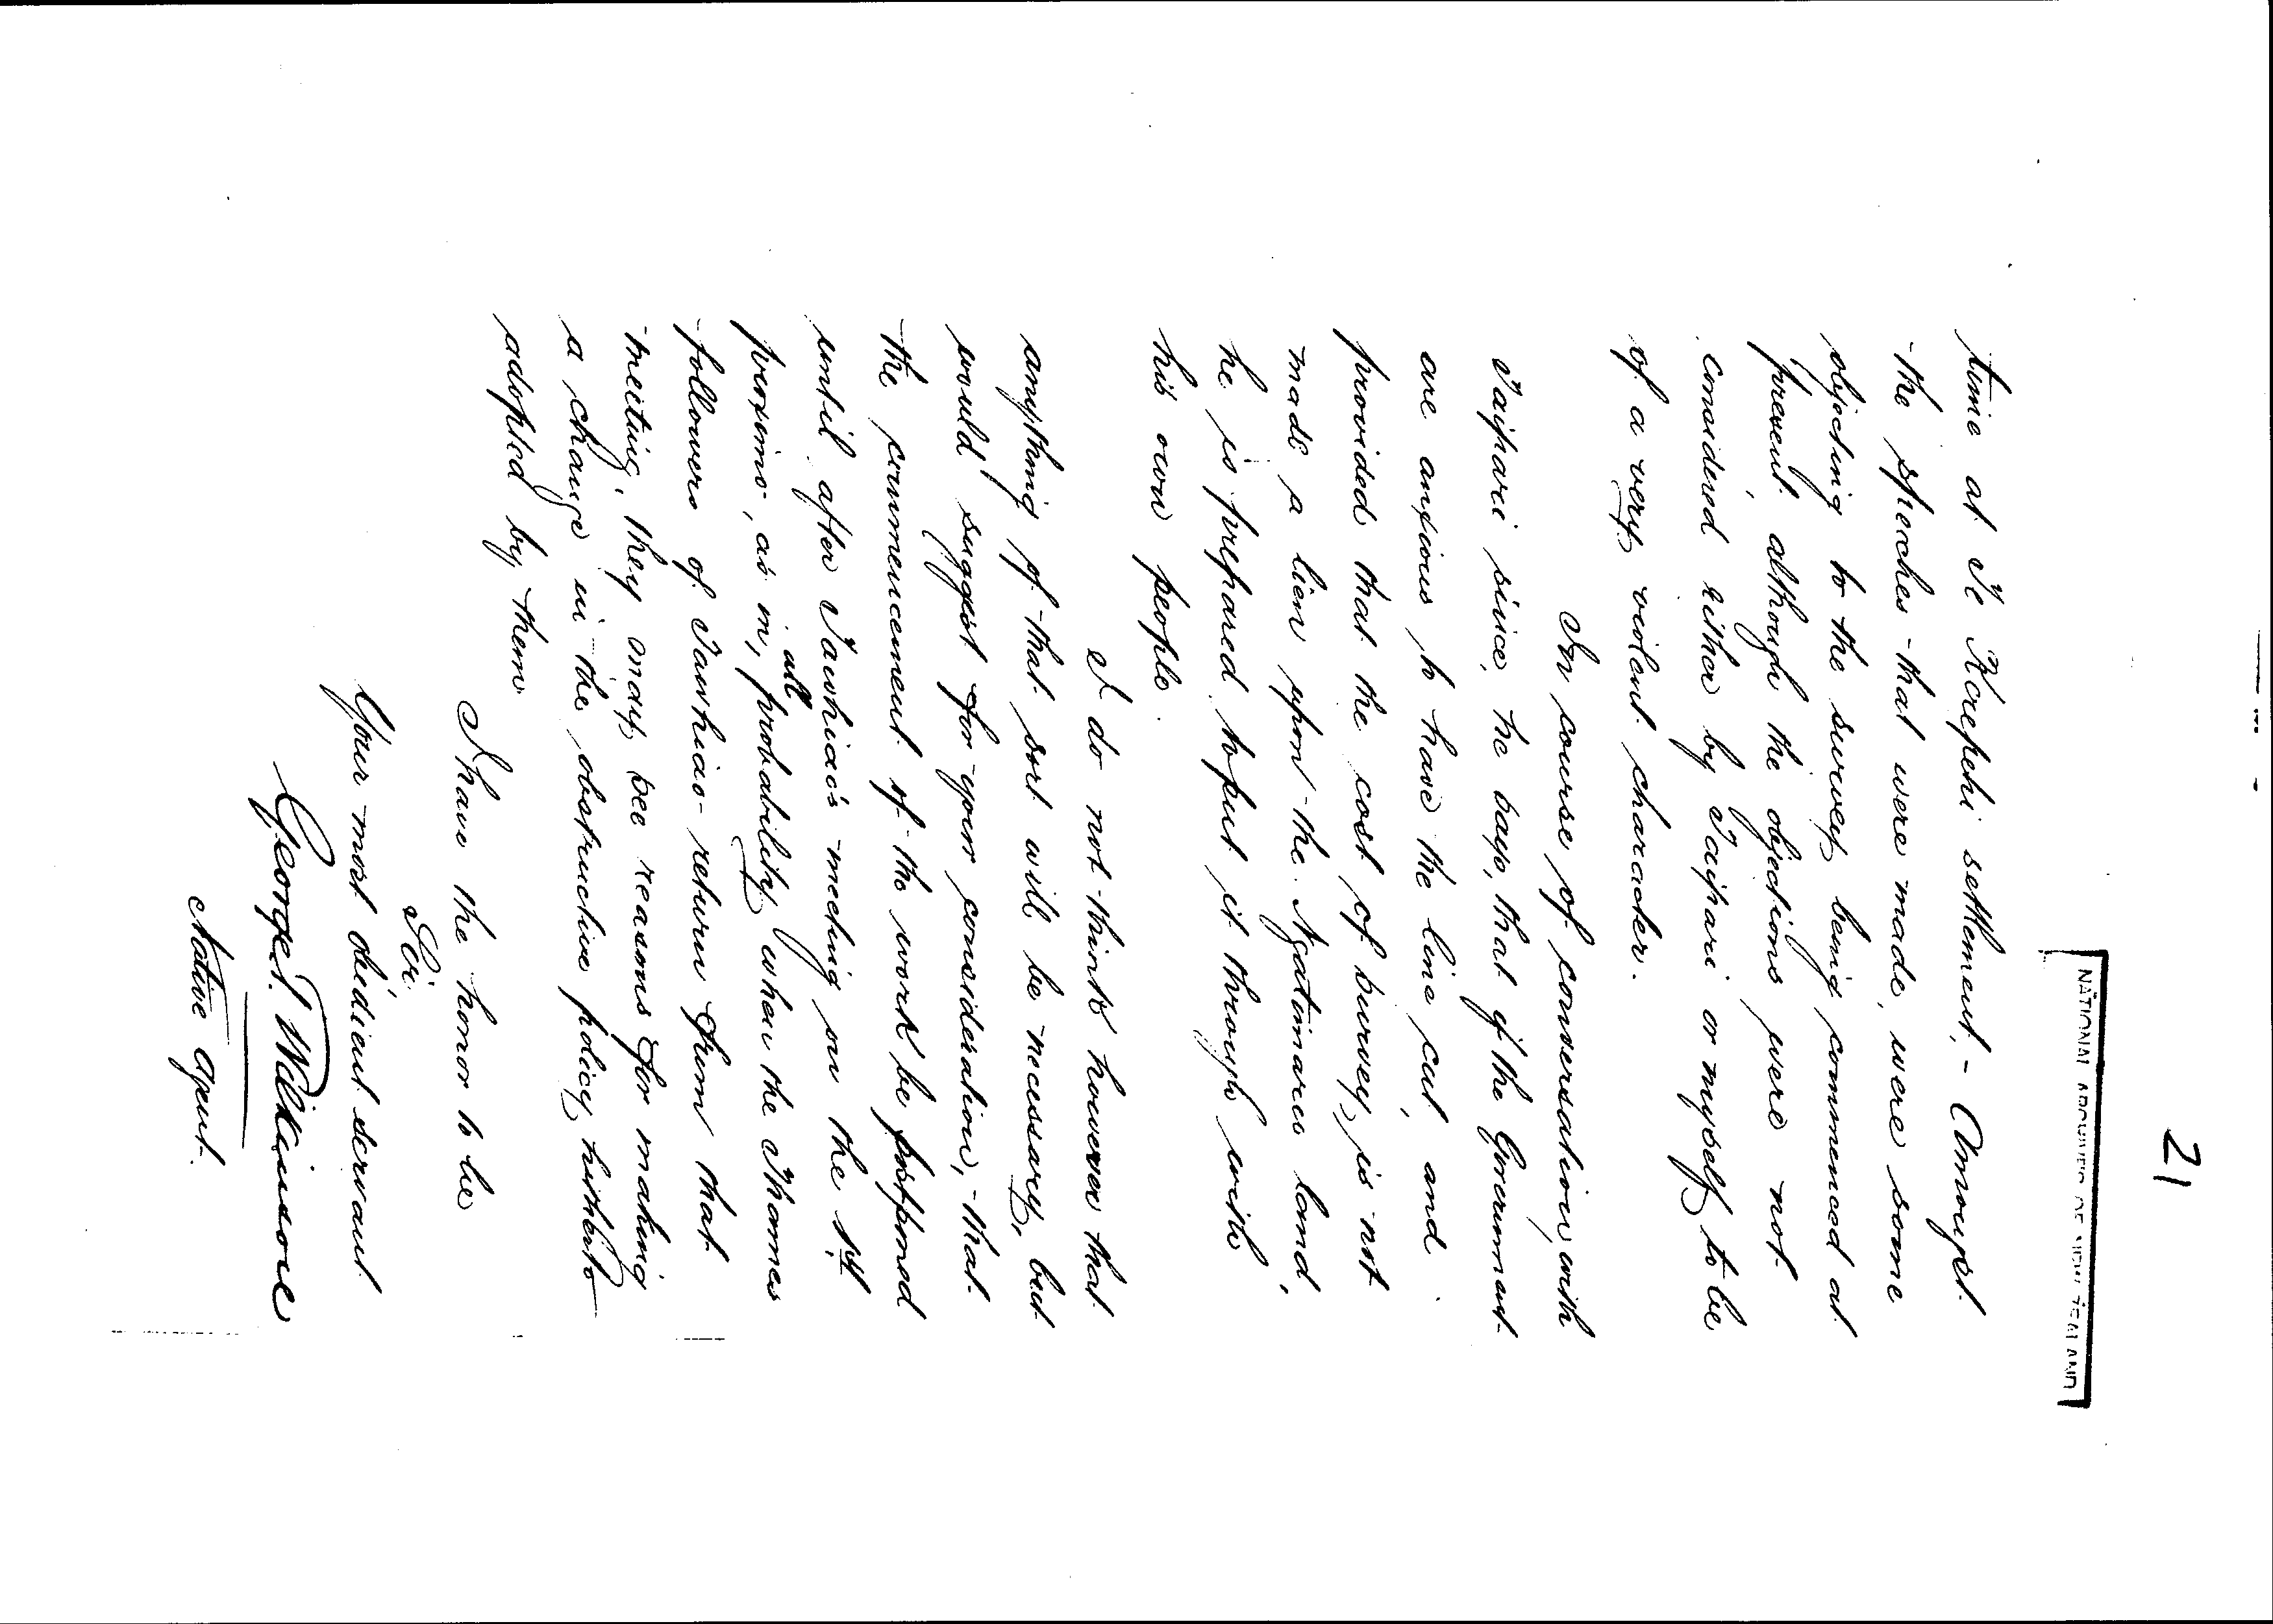 21
NATIONAL ARCHIVES OF NEW ZEALAND
time at Te Kerepehi settlement, - Amongst
the speeches that were made, were some
objecting to the survey being commenced at
present, although the objections were not
considered either by Taipari or myself to be
of a very violent character.
In course of conversation, with
Taipari since, he says, that if the Government
are anxious to have the line cut, and
provided that the cost of survey is not
made a lien upon the Ngatimaru land,
he is prepared to put it through with
his own people.
I do not think however that
anything of that sort will be necessary, but
would suggest for your consideration, that
the commencement of the work be postponed
until after Tawhiao's meeting on the
proximo, as in all probability when the Thames
followers of Tawhiao return from that
meeting, they may see reasons for making
a change in the obstructive policy hitherto
adopted by them
I have the honor to be
Sir,
Your most obedient servant
George T. Wilkinson
Native Agent.